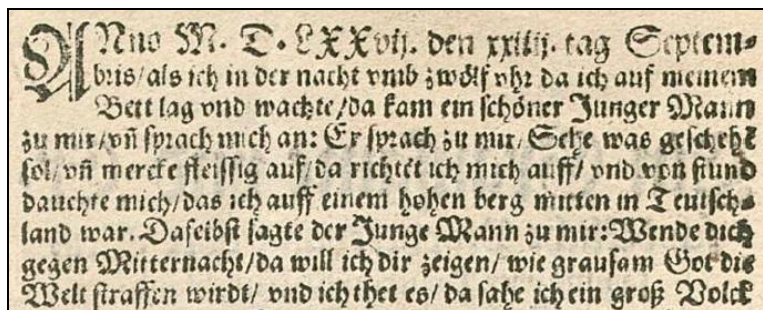 ANno M. D. LXXvij. den xxiiij. tag Septem⸗
bris/ als ich in der nacht vmb zwölf vhr da ich auf meinem
Bett lag vnd wachte/ da kam ein schöner Junger Mann
zu mir/ vñ sprach mich an: Er sprach zu mir/ Sehe was geschehē
sol/ vñ mercke fleissig auf/ da richtet ich mich auff/ vnd von stund
dauchte mich/ das ich auff einem hohen berg mitten in Teutsch⸗
land war. Daselbst sagte der Junge Mann zu mir: Wende dich
gegen Mitternacht/ da will ich dir zeigen/ wie grausam Got die
Welt straffen wirdt/ vnd ich thet es/ da sahe ich ein groß Volck